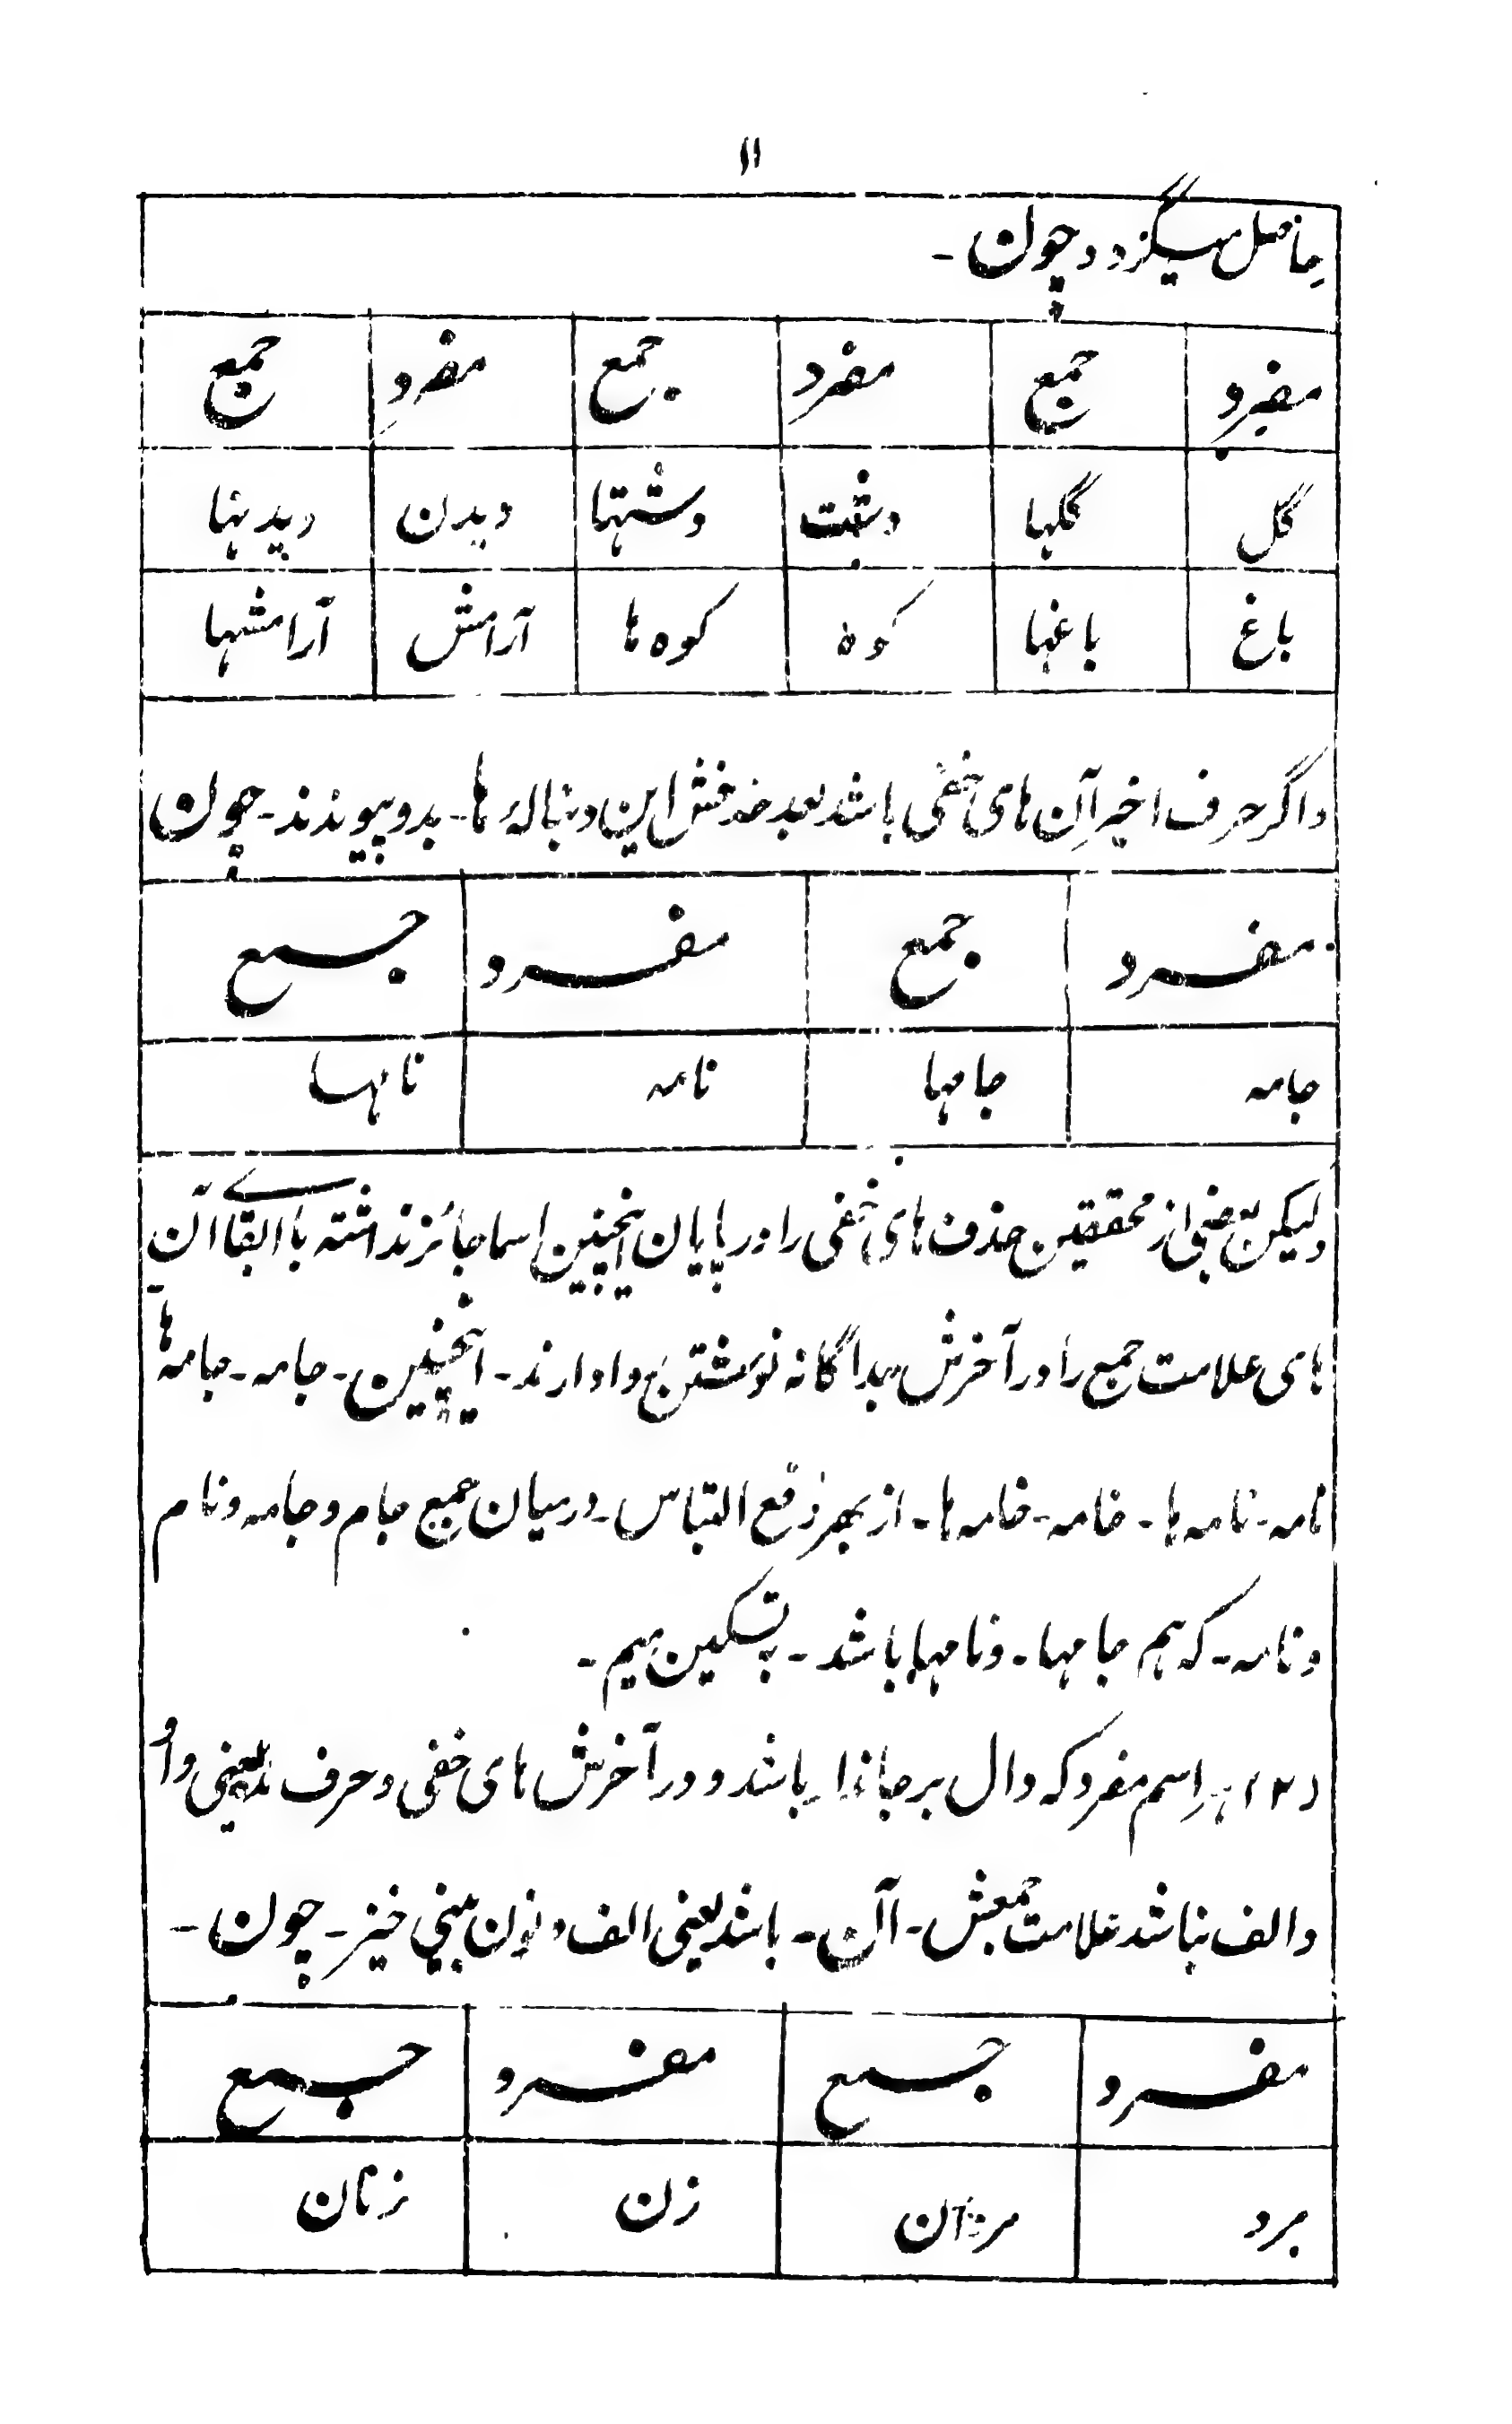 ۱۱
حاصل میگردد چون -
مفرد جمع مفرد جمع مفرد جمع
گل گلها دشت دشتها دیدن دیدنها
باغ باغها کوه کوه ها آرامش آرامشها
واگر حرف اخیر آن های خفی باشد بعد حذفش این دنباله ها - بدو پیوندند - چون
مفرد جمع مفرد جمع
جامه جامها نامه نامها
ولیکن بعضی از محققین حذف های خفی را در پایان اینچنین اسما جائز نداشته با ابقاے آن
های علامت جمع را در آخرش جداگانه نوشتن روا دارند - اینچنین - جامه - جامه ها
نامه - نامه ها - خامه - خامه ها - از بهر رفع التباس - درمیان جمع جام و جامه و نام
و نامه - که هم جامها - و نامها باشد - بتسکین میم -
(۲) هر اسم مفرد که دال بر جاندار باشد و در آخرش های خفی و حرف مد یعنی واؤ
والف نباشد علامت جمعش - آن - باشد یعنی الف و نون چون -
مفرد جمع مفرد جمع
مرد مردان زن زنان